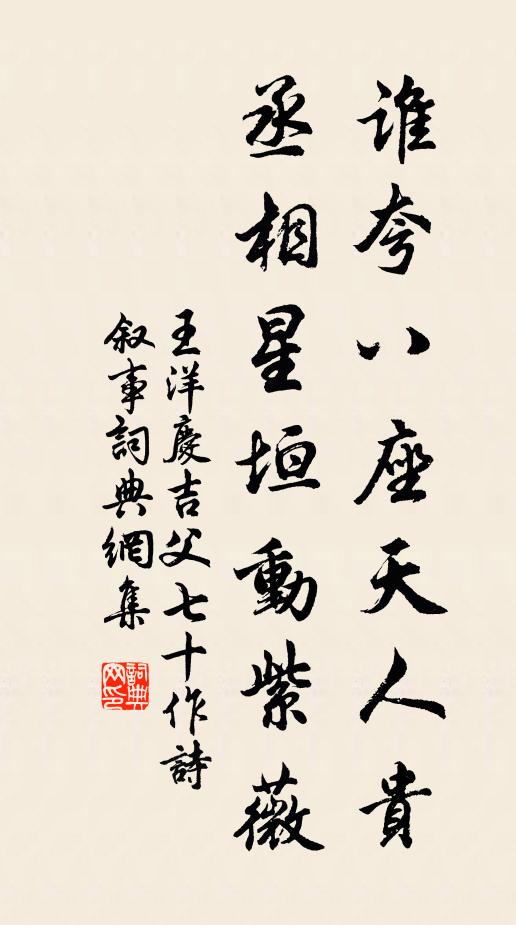 誰夸八座天人貴
丞相星垣動紫薇
王洋慶吉父七十作詩
叙事詞典網集
詞典
网印